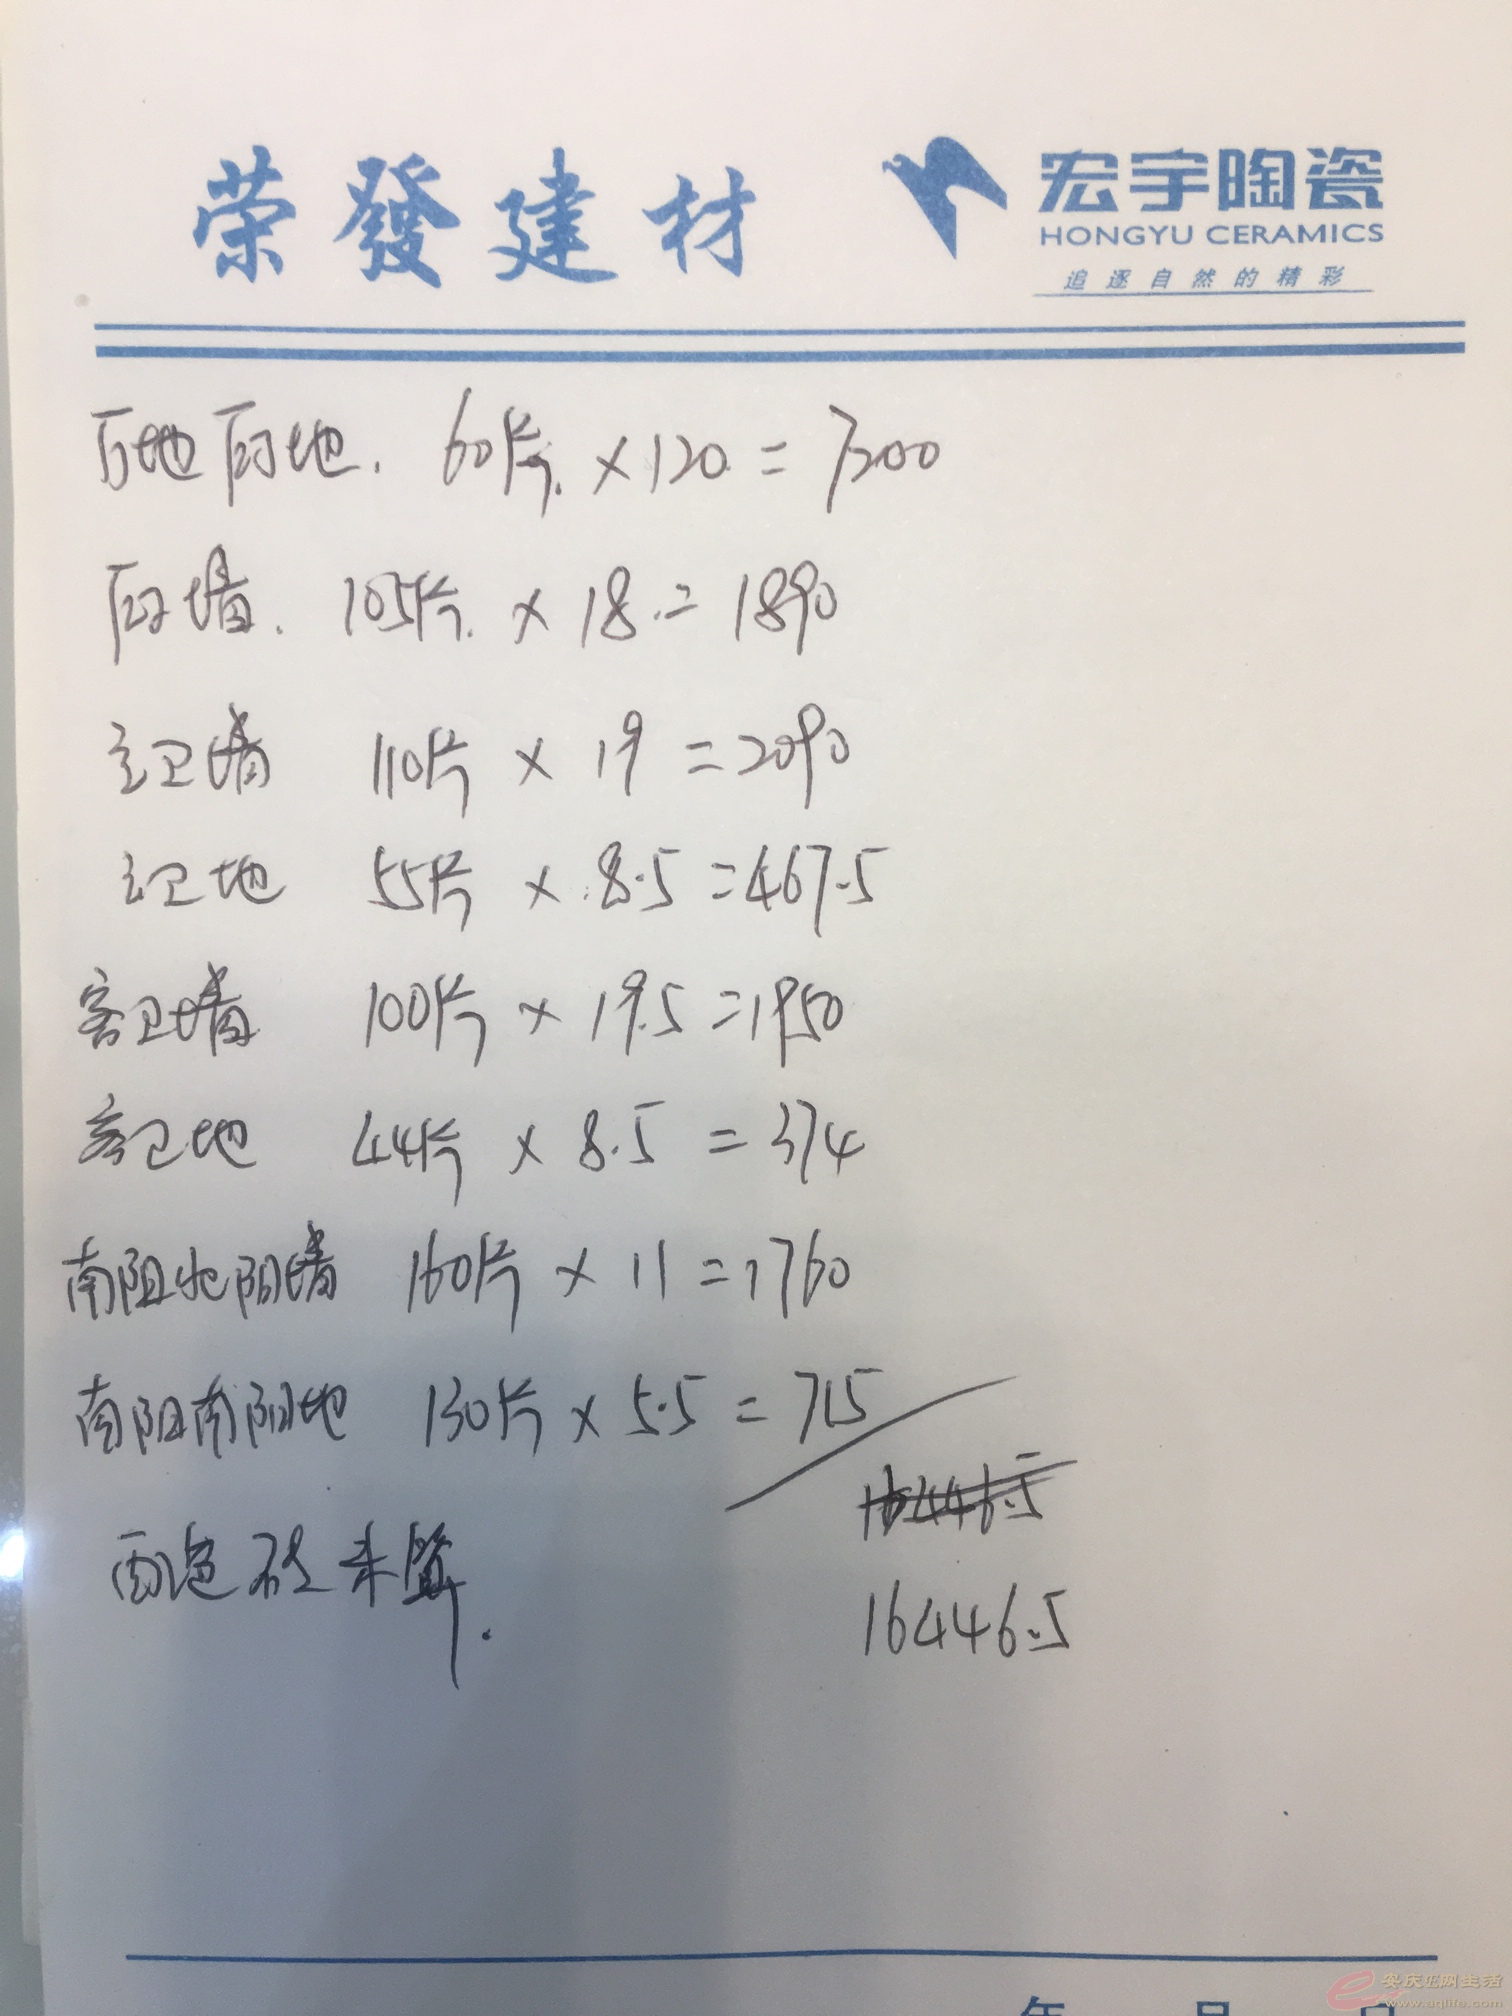 荣發建材
宏宇陶瓷
HONGYU CERAMICS
追逐自然的精彩
厅地厨地. 60片. ×120 = 7200
厨墙. 105片. × 18 = 1890
主卫墙 110片 × 19 = 2090
主卫地 55片 × 8.5 = 467.5
客卫墙 100片 × 19.5 = 1950
客卫地 44片 × 8.5 = 374
南阳北阳墙 160片 × 11 = 1760
南阳南阳地 130片 × 5.5 = 715
16446.5
配色砖未算.
16446.5
年 月 日
安庆E网生活
www.aqlife.com